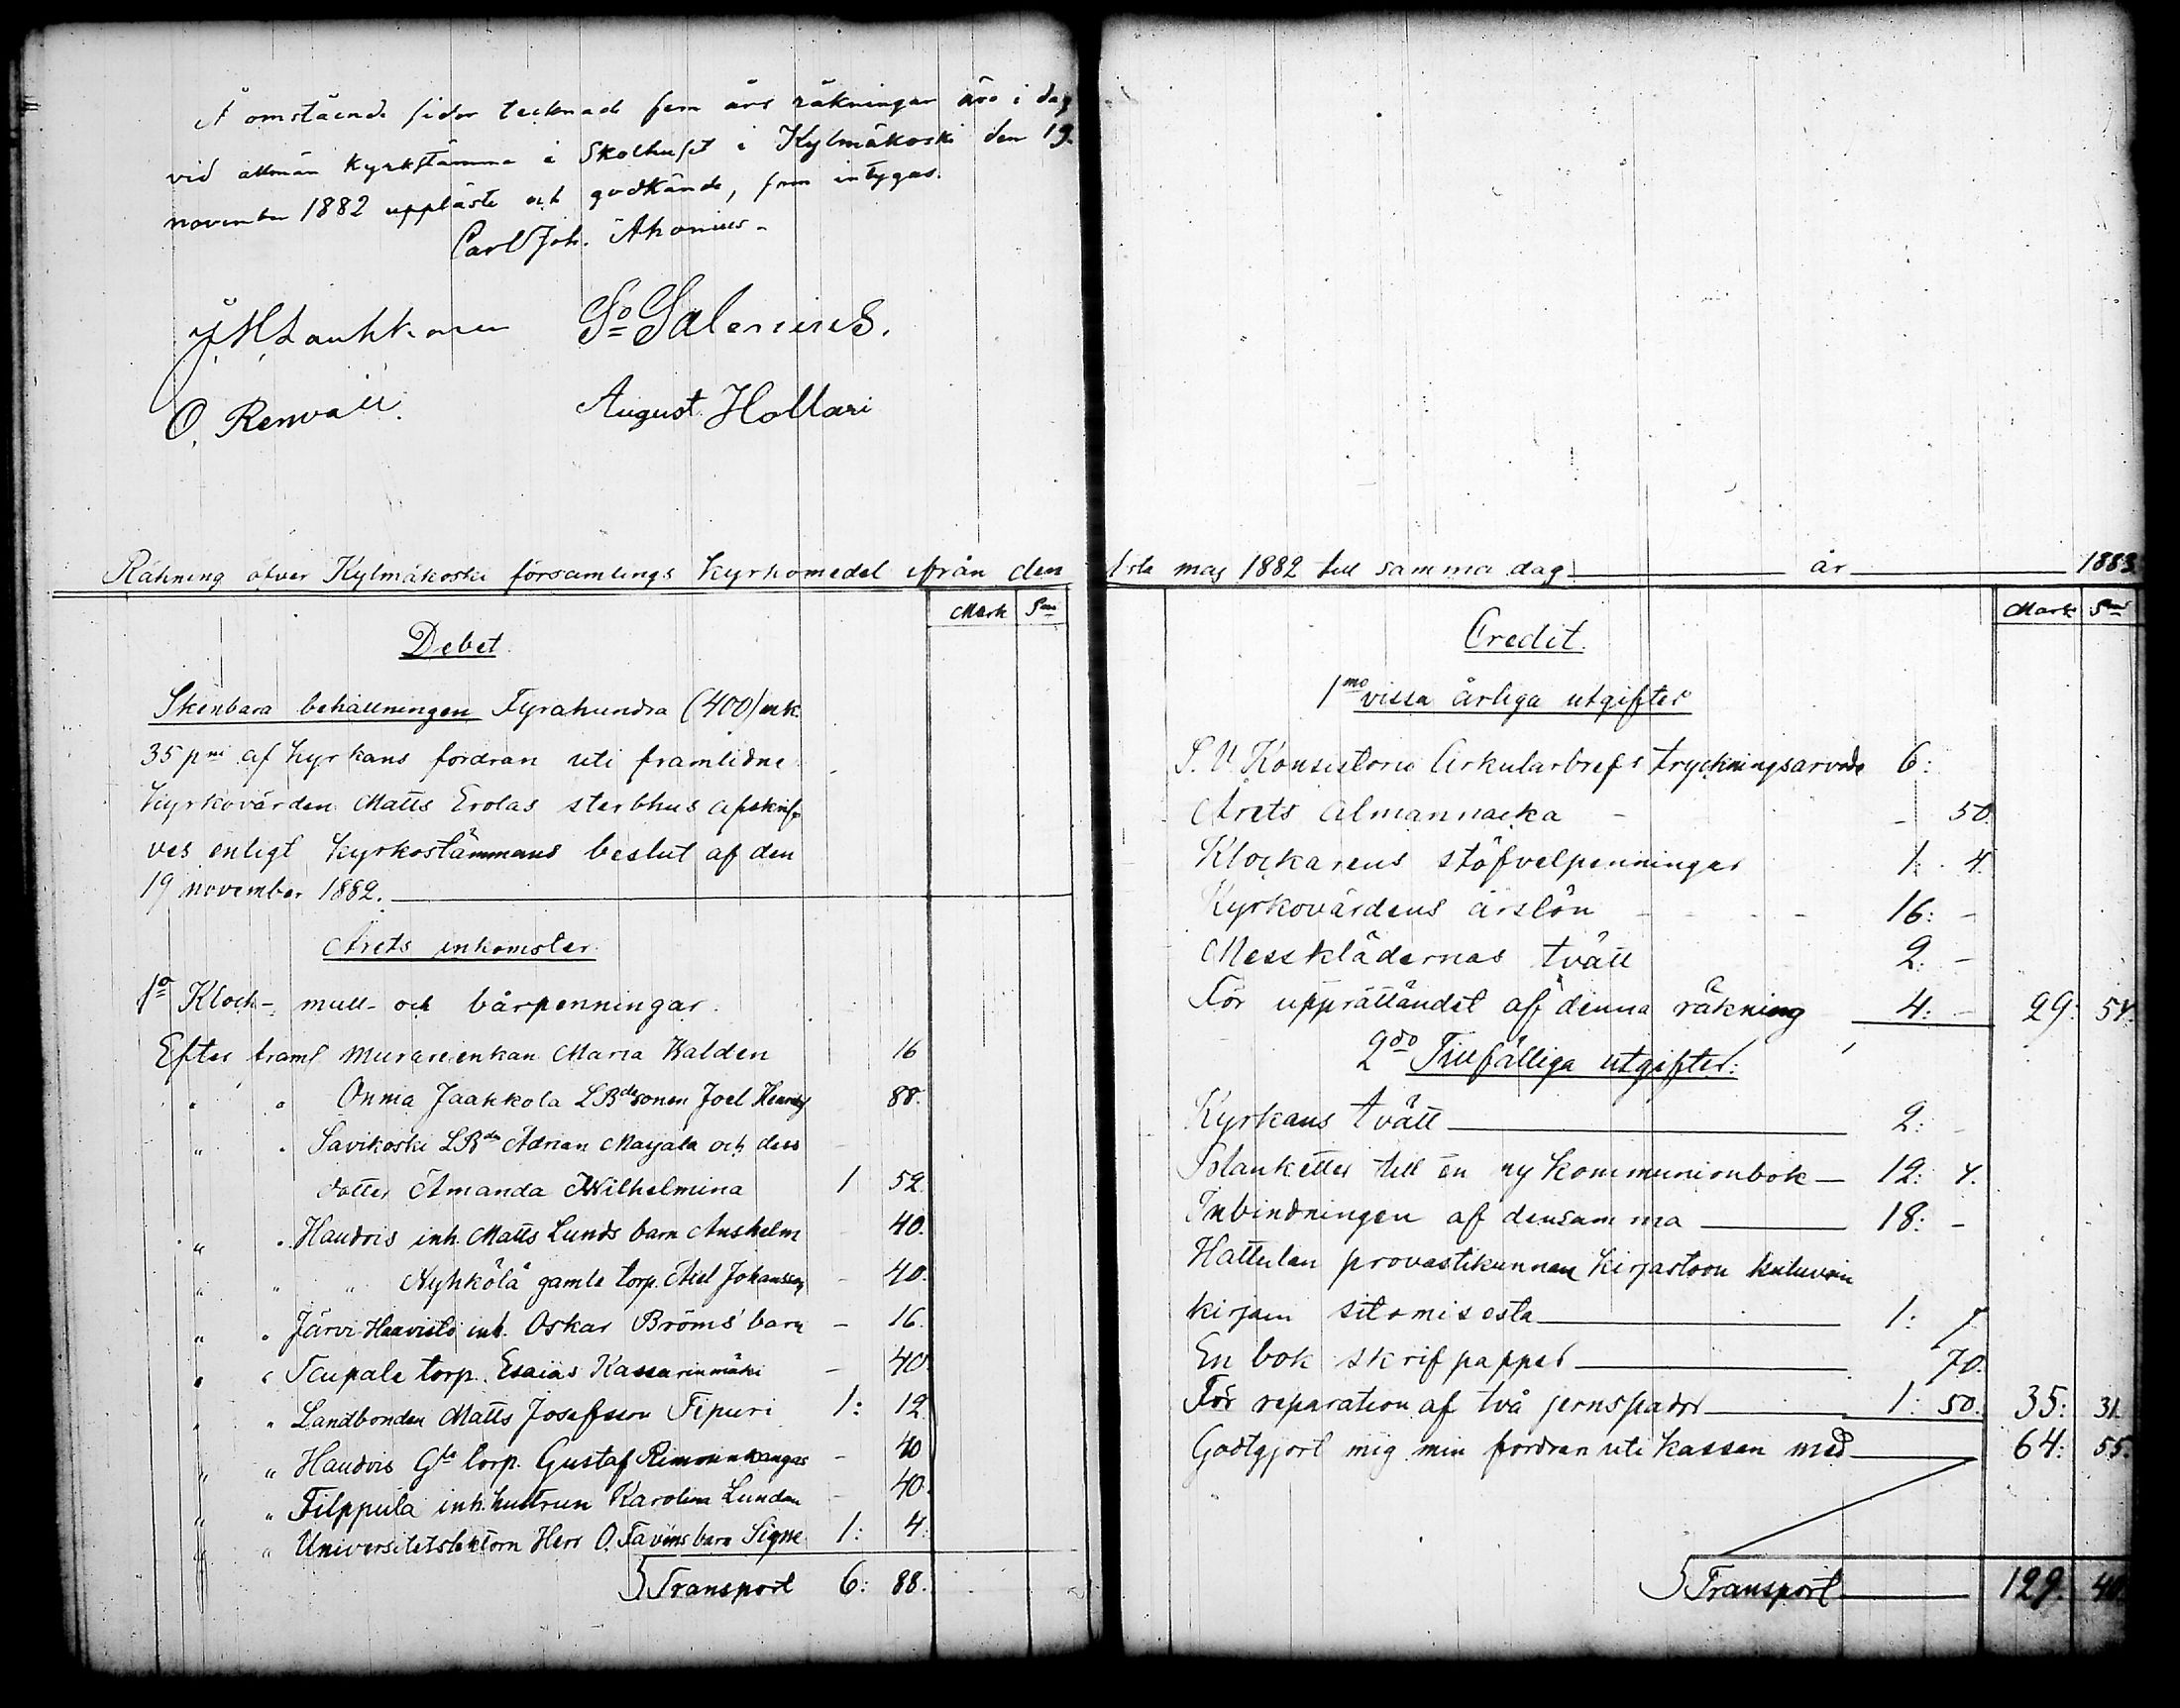 Å omstående sidor tecknade fem års räkningar äro i dag
vid allmän kyrkstämma i Skolhuset i Kylmäkoski den 19.
november 1882 uppläste och godkände, som intygas.
Carl Joh. Ahonius.
J. H. Laukkanen So Salenius.
O. Renvall. August Hollari
Räkning öfver Kylmäkoski församlings kyrkomedel ifrån den
Mark Pni
Debet.
Skenbara behållningen Fyrahundra (400) mk.
35 pni af kyrkans fordran uti framlidne
kyrkovärden Matts Erolas sterbhus afskrif-
ves enligt kyrkostämmans beslut af den
19 november 1882.
Årets inkomster.
1o Klock-, mull- och bårpenningar.
Efter framl murareenkan Maria Walden 16
" " Onma Jaakkola LBdesonen Joel 88.
" " Savikoski LBdn Adrian Mayala och dess
dotter Amanda Wilhelmina 1 52.
" " Haudois inh. Matts Lunds barn Anshelm 40.
" " " Nyhkölä gamle torp. Axel Johansson - 40.
" " Järvi-Haavisto inh. Oskar Bröms barn - 16.
" " Taupale torp. Esaias Kassarinmäki - 40.
" " Landbonden Matts Josefsson Tipuri 1: 12
" " Haudois Gla torp. Gustaf Rimminkangas - 40
" " Filppula inh. hustrun Karolina Lundan - 40.
" " Universitetslektorn Herr O. Favéns barn Signe 1: 4.
Transport 6: 88.
1sta maj 1882 till samma dag år 1883.
Mark Pni
Credit.
1mo vissa årliga utgifter
S. V. Konsistorii Cirkularbrefs tryckningsarvode 6:
Årets almannacka - - 50.
Klockarens stöfvelpenningar 1: 4.
Kyrkovärdens årslön - - - - 16: -
Messklädernas tvätt 2: -
För upprättandet af denna räkning 4: - 29: 54.
2do Tillfälliga utgifter:
Kyrkans tvätt 2: -
Blanketter till en ny kommunionbok 12: 4.
Inbindningen af densamma 18: -
Hattulan provastikunnan kirjastoon kuluvain
kirjain sitomisesta 1: 7
En bok skrifpapper 70.
För reparation af två jernspador 1: 50. 35: 31.
Godtgjort mig min fordran uti kassan med 64: 55.
Transport 129. 40.